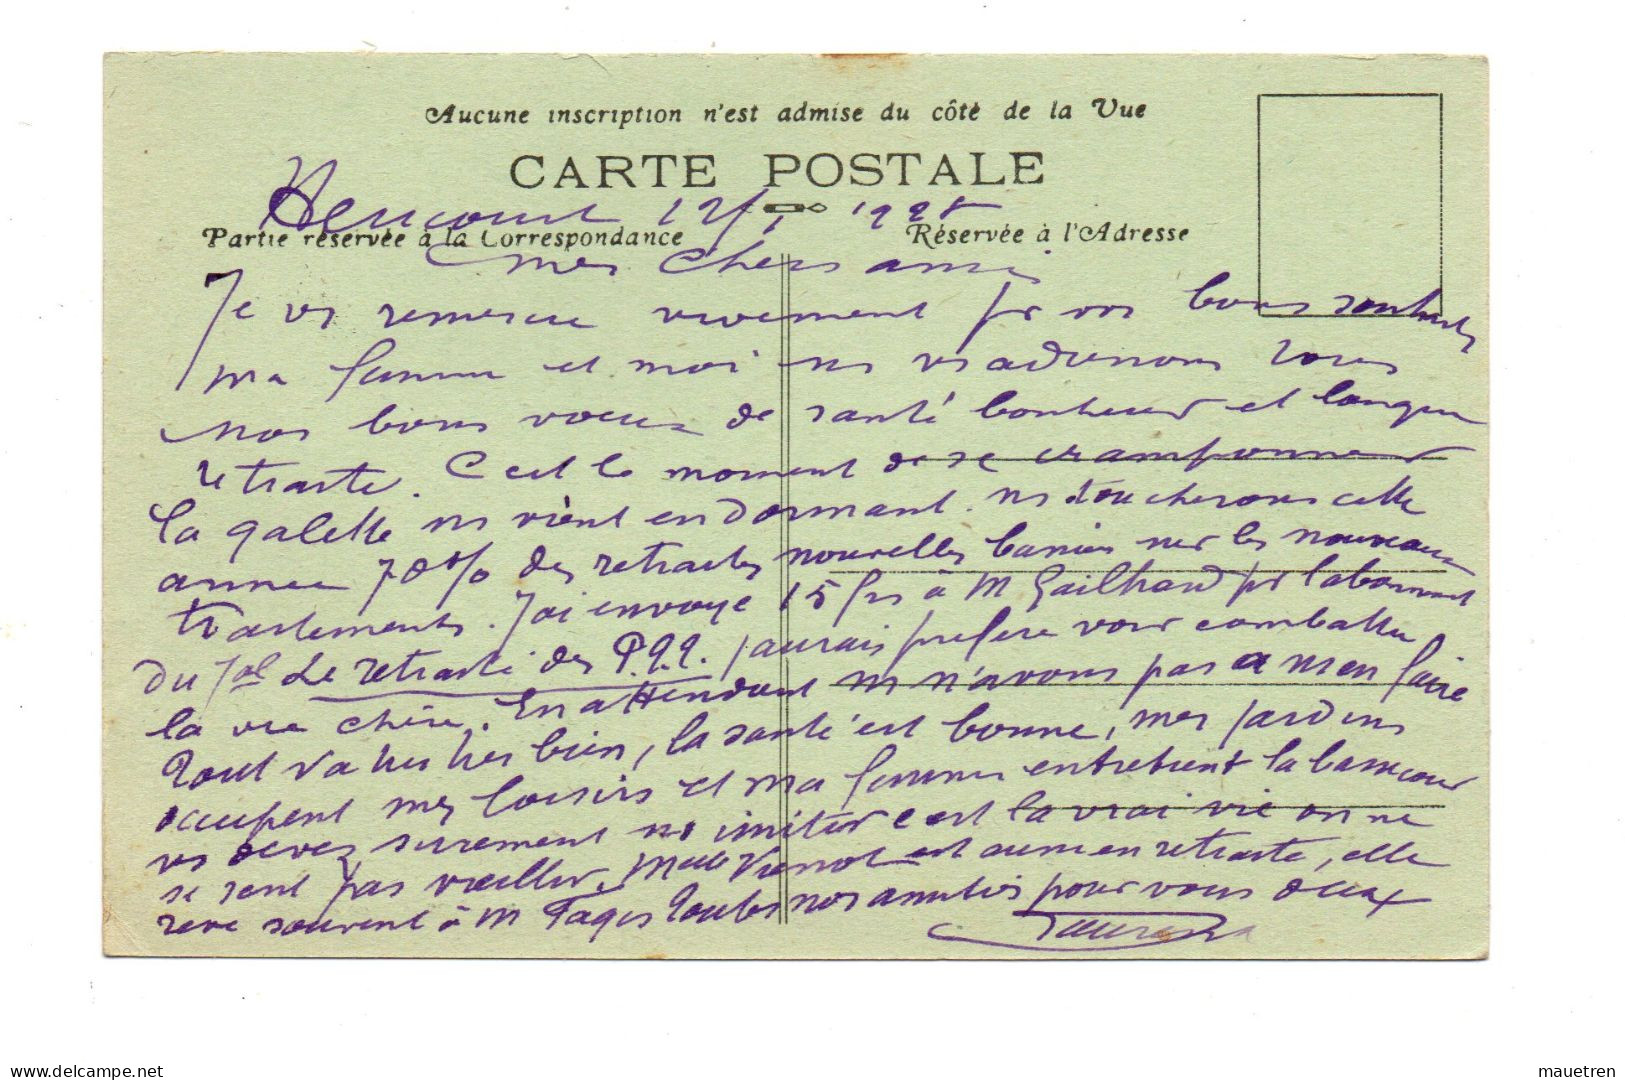 Aucune inscription n'est admise du côté de la Vue
CARTE POSTALE
12/1 1928
Partie réservée à la Correspondance
Réservée à l'Adresse
mes chers amis
Je vs remercie vivement pr vos bons souhaits
ma femme et moi ns vs adressons tous
nos bons voeux de santé bonheur et longue
retraite. C'est le moment de se cramponner
la galette ns vient en dormant. ns toucherons cette
année 70% des retraites nouvelles basées sur les nouveaux
traitements. J'ai envoyé 15 frs à M Gailhard pr l'abonnement
du Jal Le retraité des P.T.T. j'aurais préféré voir combattre
la vie chère. En attendant ns n'avons pas à ns en faire
Tout va très très bien, la santé est bonne, mes jardins
occupent mes loisirs et ma femme entretient la basse cour
vs devez surement ns imiter c'est la vrai vie on ne
se sent pas vieillir. Melle Vienot est aussi en retraite, elle
reve souvent à M Pages Toutes nos amitiés pour vous deux
a. mauetren
delcampe.net